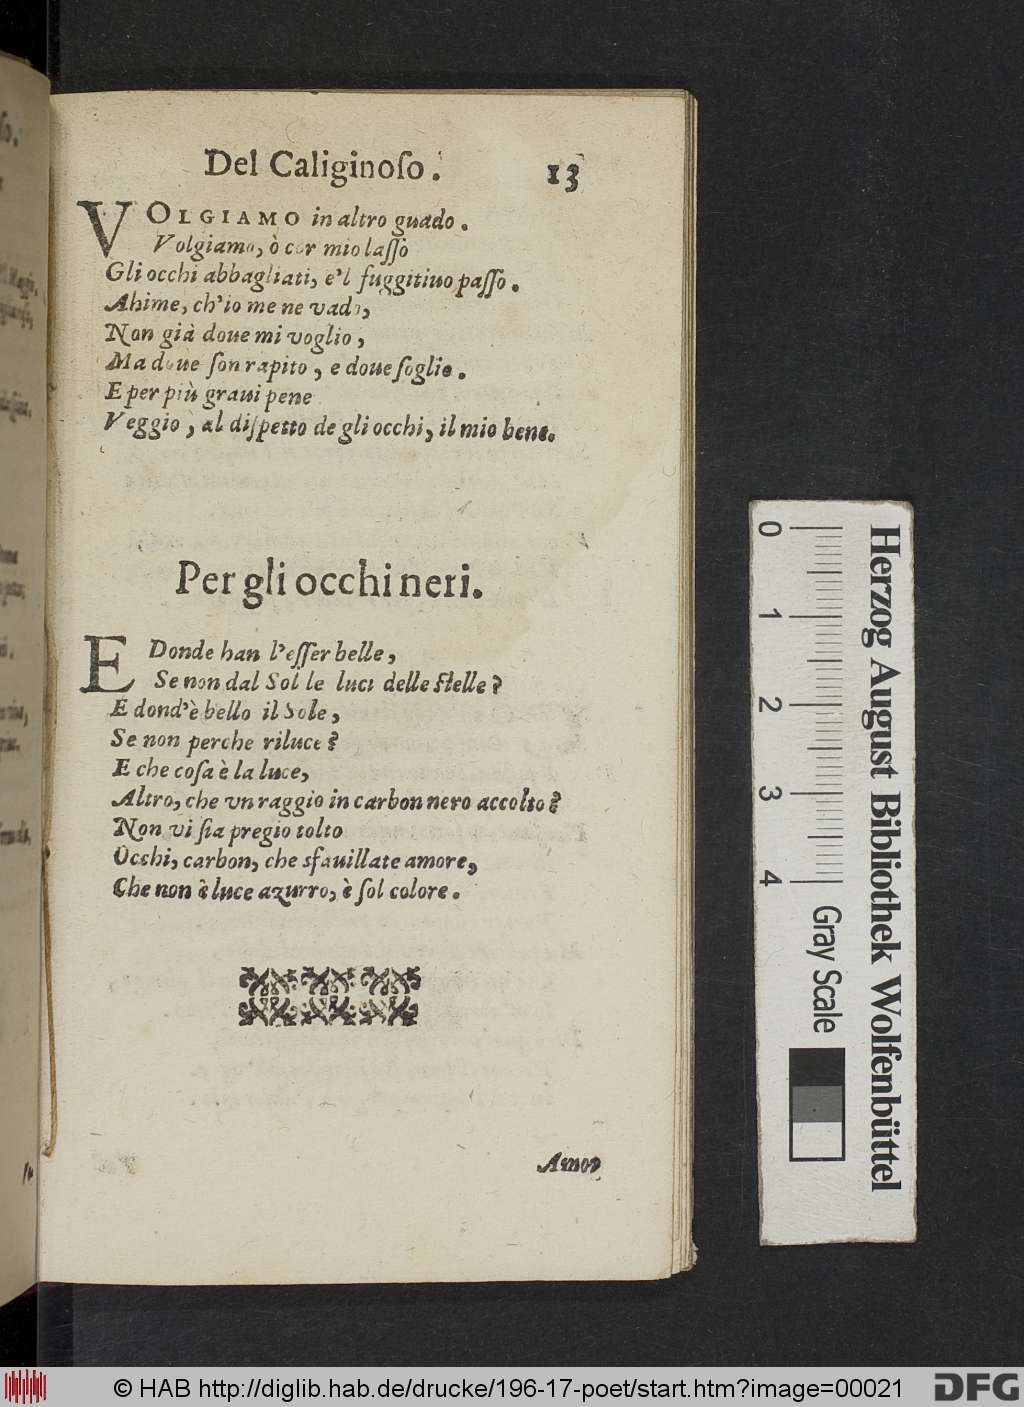 Del Caliginoſo. 13
VOLGIAMO in altro guado.
Volgiamo, ò cor mio laſſo
Gli occhi abbagliati, e'l fuggitiuo paſſo.
Ahime, ch'io me ne vado,
Non già doue mi voglio,
Ma doue ſon rapito, e doue ſoglio.
E per più graui pene
Veggio, al diſpetto de gli occhi, il mio bene.
Per gli occhi neri.
E Donde han l'eſſer belle,
Se non dal Sol le luci delle ſtelle?
E dond'è bello il Sole,
Se non perche riluce?
E che coſa è la luce,
Altro, che vn raggio in carbon nero accolto?
Non vi ſia pregio tolto
Occhi, carbon, che sfauillate amore,
Che non è luce azurro, è ſol colore.
Amor
0 1 2 3 4
Gray Scale
Herzog August Bibliothek Wolfenbüttel
© HAB http://diglib.hab.de/drucke/196-17-poet/start.htm?image=00021
DFG